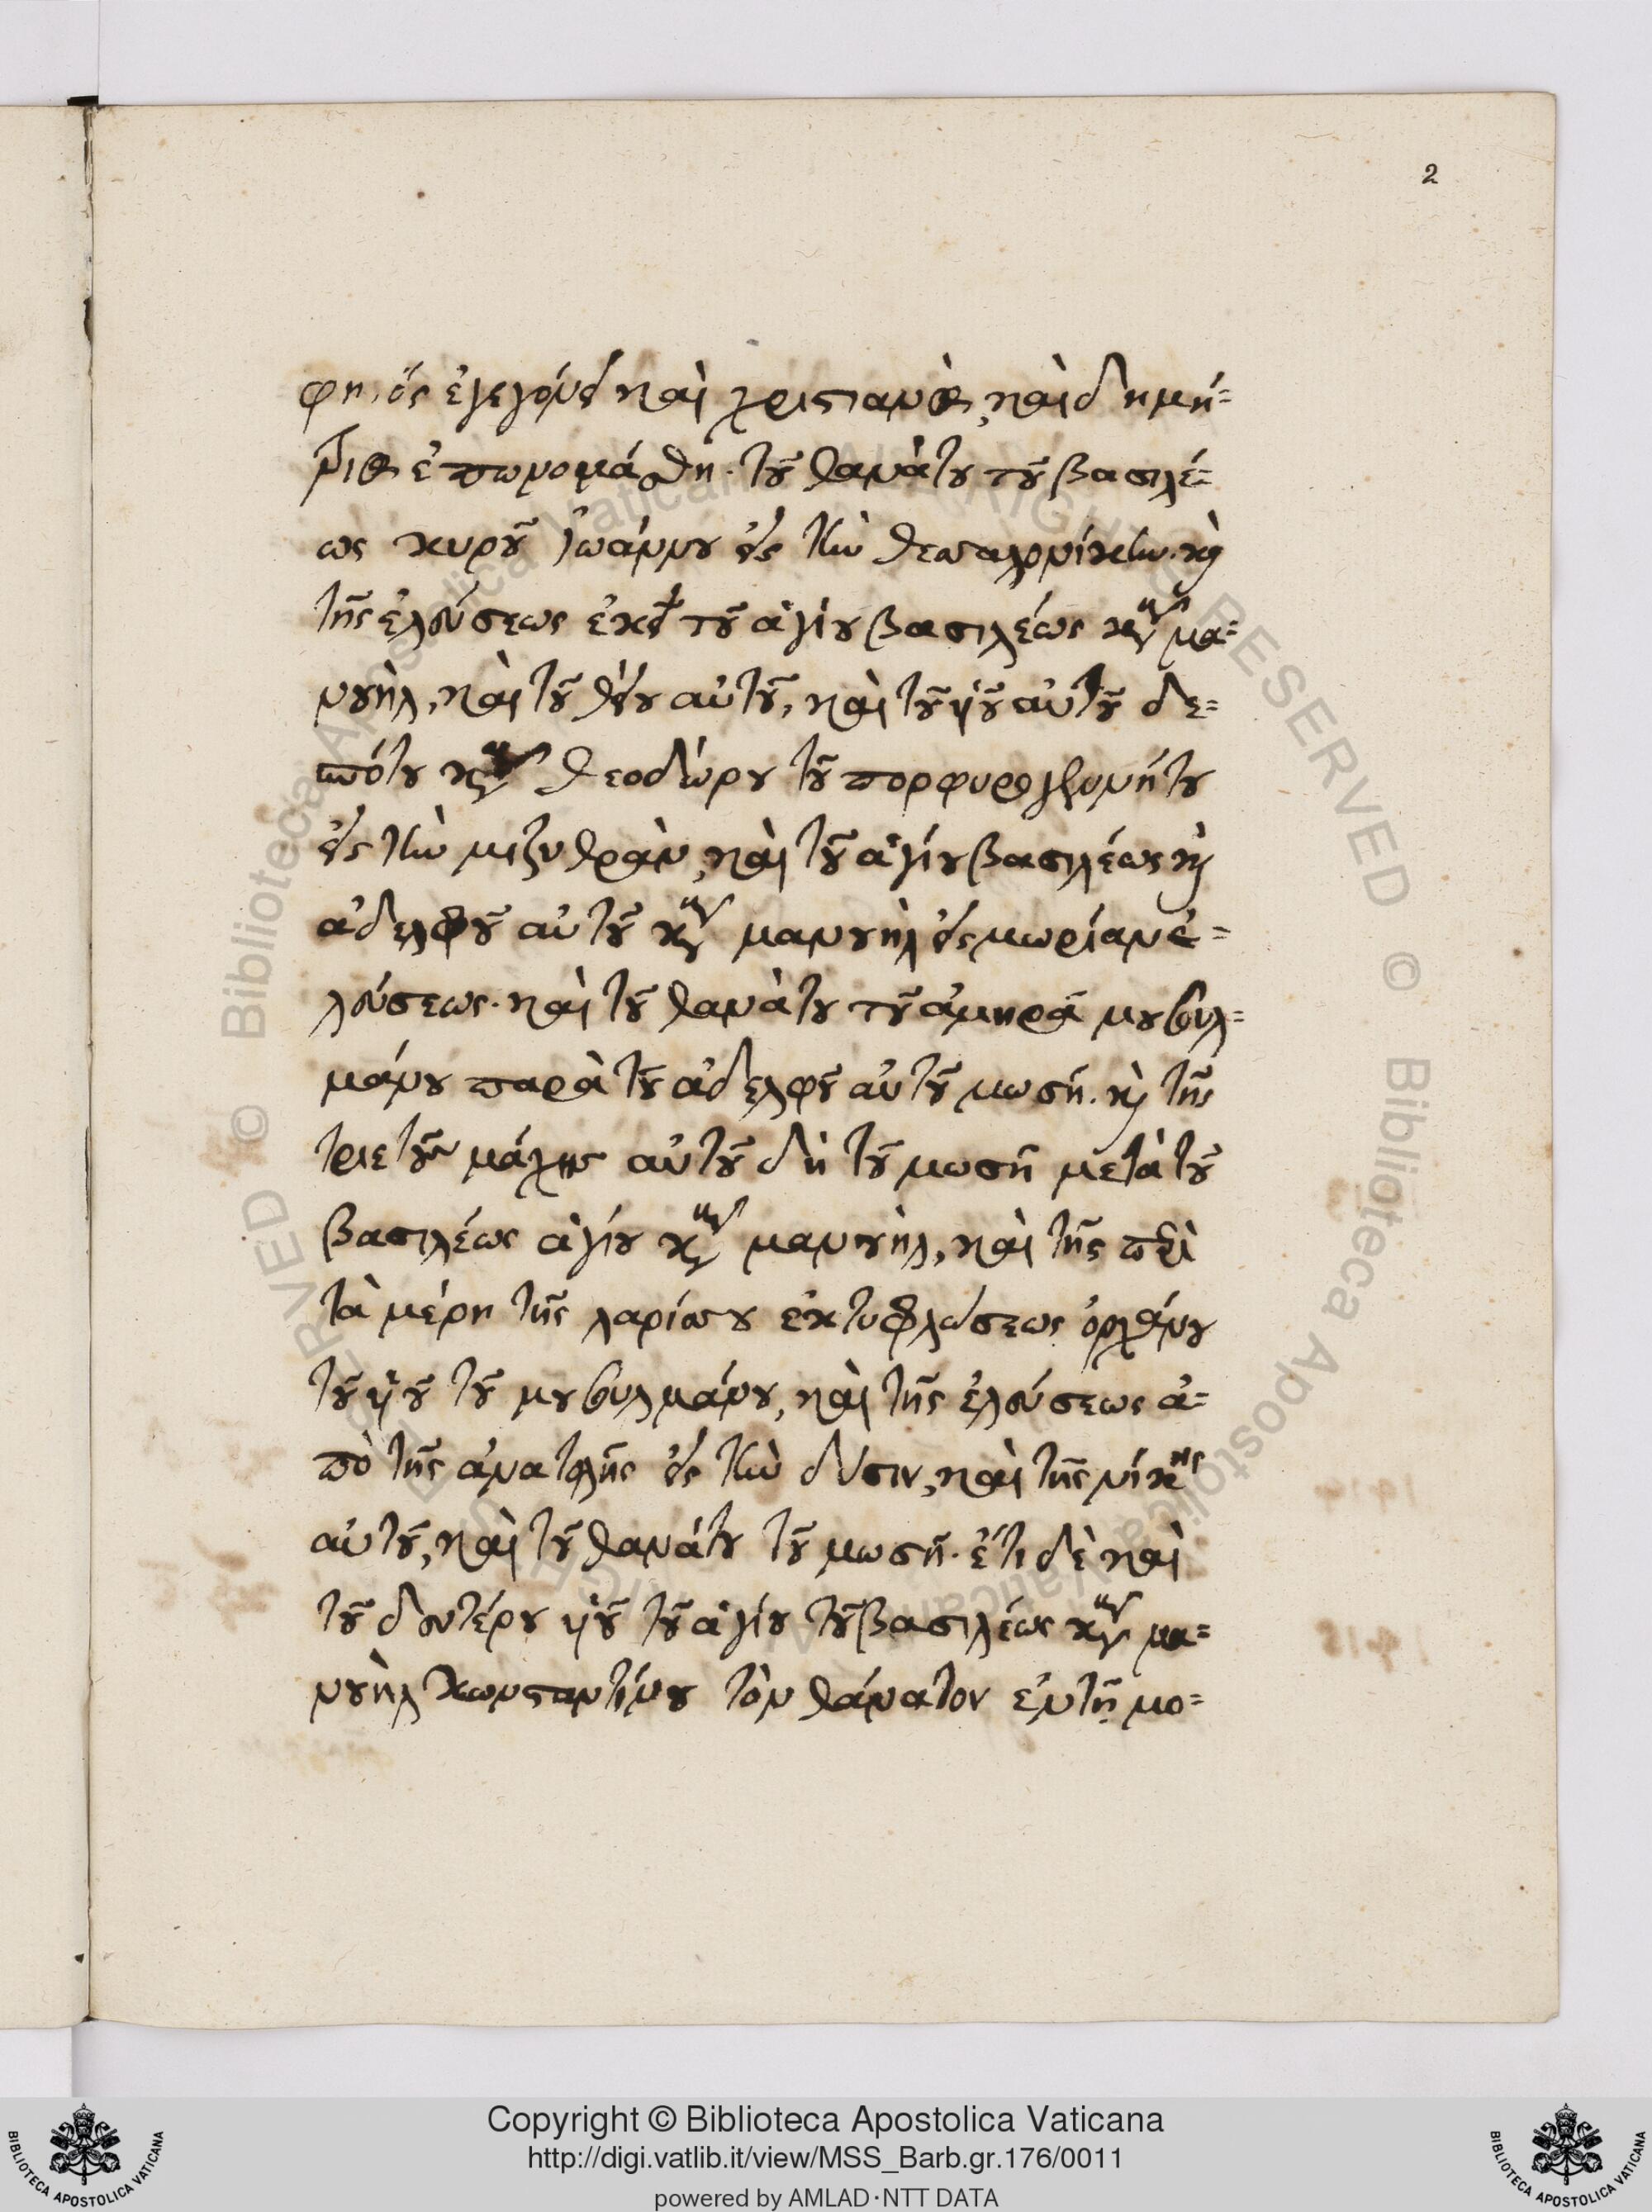 2
φη, ὃς ἐγεγόνει καὶ χριστιανὸς, καὶ δημή-
τριος ἐπωνομάσθη. τοῦ θανάτου τοῦ βασιλέ-
ως κυροῦ Ἰωάννου εἰς τὴν θεσσαλονίκην. καὶ
τῆς ἐλεύσεως ἐκεῖ τοῦ ἁγίου βασιλέως κυροῦ μα-
νουὴλ, καὶ τοῦ θείου αὐτοῦ, καὶ τοῦ υἱοῦ αὐτοῦ δε-
σπότου κυροῦ θεοδώρου τοῦ πορφυρογεννήτου
εἰς τὴν μιζυθρὰν, καὶ τοῦ ἁγίου βασιλέως καὶ
ἀδελφοῦ αὐτοῦ κυροῦ μανουὴλ εἰς μωρίαν ἐ-
λεύσεως. καὶ τοῦ θανάτου τοῦ ἀμηρᾶ μουσουλ-
μάνου παρὰ τοῦ ἀδελφοῦ αὐτοῦ μωσῆ. καὶ τῆς
τριετοῦς μάχης αὐτοῦ δὴ τοῦ μωσῆ μετὰ τοῦ
βασιλέως ἁγίου κυροῦ μανουὴλ, καὶ τῆς περὶ
τὰ μέρη τῆς λαρίσσου ἐκτυφλώσεως ὀρχάνου
τοῦ υἱοῦ τοῦ μουσουλμάνου, καὶ τῆς ἐλεύσεως ἀ-
πὸ τῆς ἀνατολῆς εἰς τὴν δύσιν, καὶ τῆς νίκης
αὐτοῦ, καὶ τοῦ θανάτου τοῦ μωσῆ. ἔτι δὲ καὶ
τοῦ δευτέρου υἱοῦ τοῦ ἁγίου τοῦ βασιλέως κυροῦ μα-
νουὴλ κωνσταντίνου τὸν θάνατον ἐν τῇ μο-
Copyright © Biblioteca Apostolica Vaticana
http://digi.vatlib.it/view/MSS_Barb.gr.176/0011
powered by AMLAD·NTT DATA
BIBLIOTECA APOSTOLICA VATICANA
BIBLIOTECA APOSTOLICA VATICANA